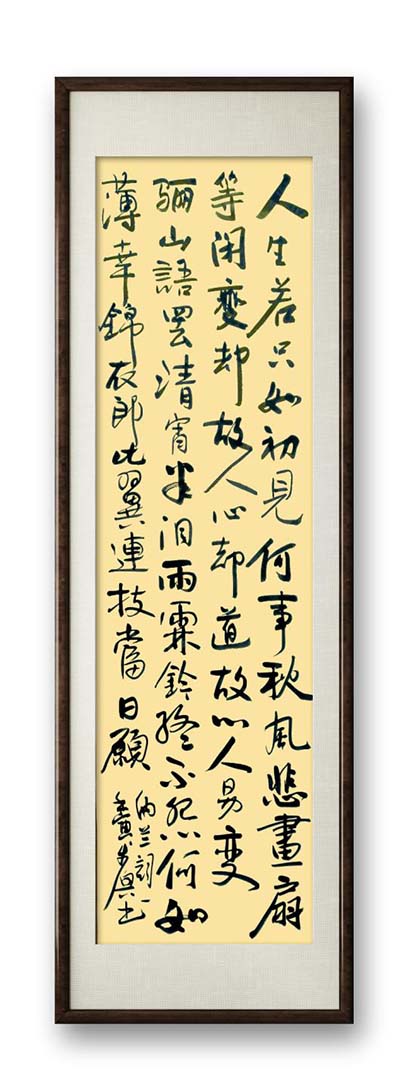 人生若只如初見何事秋風悲畫扇
等闲變却故人心却道故心人易变
骊山語罢清宵半泪雨霖鈴終不怨何如
薄幸錦衣郎比翼連枝當日願
纳兰词